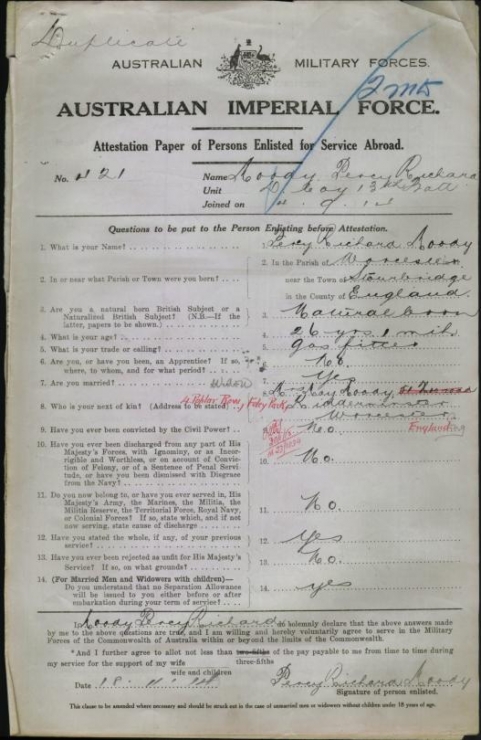 Duplicate
AUSTRALIAN MILITARY FORCES.
AUSTRALIAN IMPERIAL FORCE.
Attestation Paper of Persons Enlisted for Service Abroad.
No. 421 Name Moody, Percy Richard
Unit D Coy 13th Batt
Joined on
Questions to be put to the Person Enlisting before Attestation.
1. What is your Name? 1. Percy Richard Moody
2. In or near what Parish or Town were you born? 2. In the Parish of Worcester
near the Town of Stourbridge
in the County of England.
3. Are you a natural born British Subject or a
Naturalized British Subject? (N.B.—If the
latter, papers to be shown.) 3. Natural born
4. What is your age? 4. 26 yrs 1 mth
5. What is your trade or calling? 5. gas fitter
6. Are you, or have you been, an Apprentice? If so,
where, to whom, and for what period? 6. No.
7. Are you married? 7. Yes
Widow
8. Who is your next of kin? (Address to be stated) 8. Moody
4 Poplar Row, Foley Park Kidderminster
Worcester
England
9. Have you ever been convicted by the Civil Power? 9. No.
10. Have you ever been discharged from any part of His
Majesty's Forces, with Ignominy, or as Incor-
rigible and Worthless, or on account of Conviction
of Felony, or of a Sentence of Penal Servi-
tude, or have you been dismissed with Disgrace
from the Navy? 10. No.
11. Do you now belong to, or have you ever served in, His
Majesty's Army, the Marines, the Militia, the
Militia Reserve, the Territorial Force, Royal Navy,
or Colonial Forces? If so, state which, and if not
now serving, state cause of discharge 11. No.
12. Have you stated the whole, if any, of your previous
service? 12. Yes
13. Have you ever been rejected as unfit for His Majesty's
Service? If so, on what grounds? 13. No.
14. (For Married Men and Widowers with children)—
Do you understand that no Separation Allowance
will be issued to you either before or after
embarkation during your term of service? 14. yes
I, Moody Percy Richard do solemnly declare that the above answers made
by me to the above questions are true, and I am willing and hereby voluntarily agree to serve in the Military
Forces of the Commonwealth of Australia within or beyond the limits of the Commonwealth.
* And I further agree to allot not less than two-fifths of the pay payable to me from time to time during
three-fifths
my service for the support of my wife
wife and children
Date 18 Percy Richard Moody
Signature of person enlisted.
This clause to be amended where necessary and should be struck out in the case of unmarried men or widowers without children under 18 years of age.